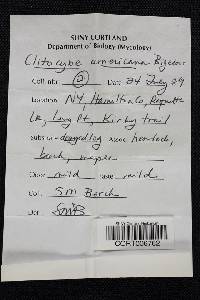 SUNY CORTLAND
Department of Biology (Mycology)
Clitocybe americana Bigelow
Coll. no. 2 Date 24 July 09
Location NY, Hamilton Co, Raquette
Lk, Long Pt, Kirby trail
Substrate decayed log assoc hemlock,
beech, maple
Odor mild taste mild
Coll. SM Berch
Det. SMB